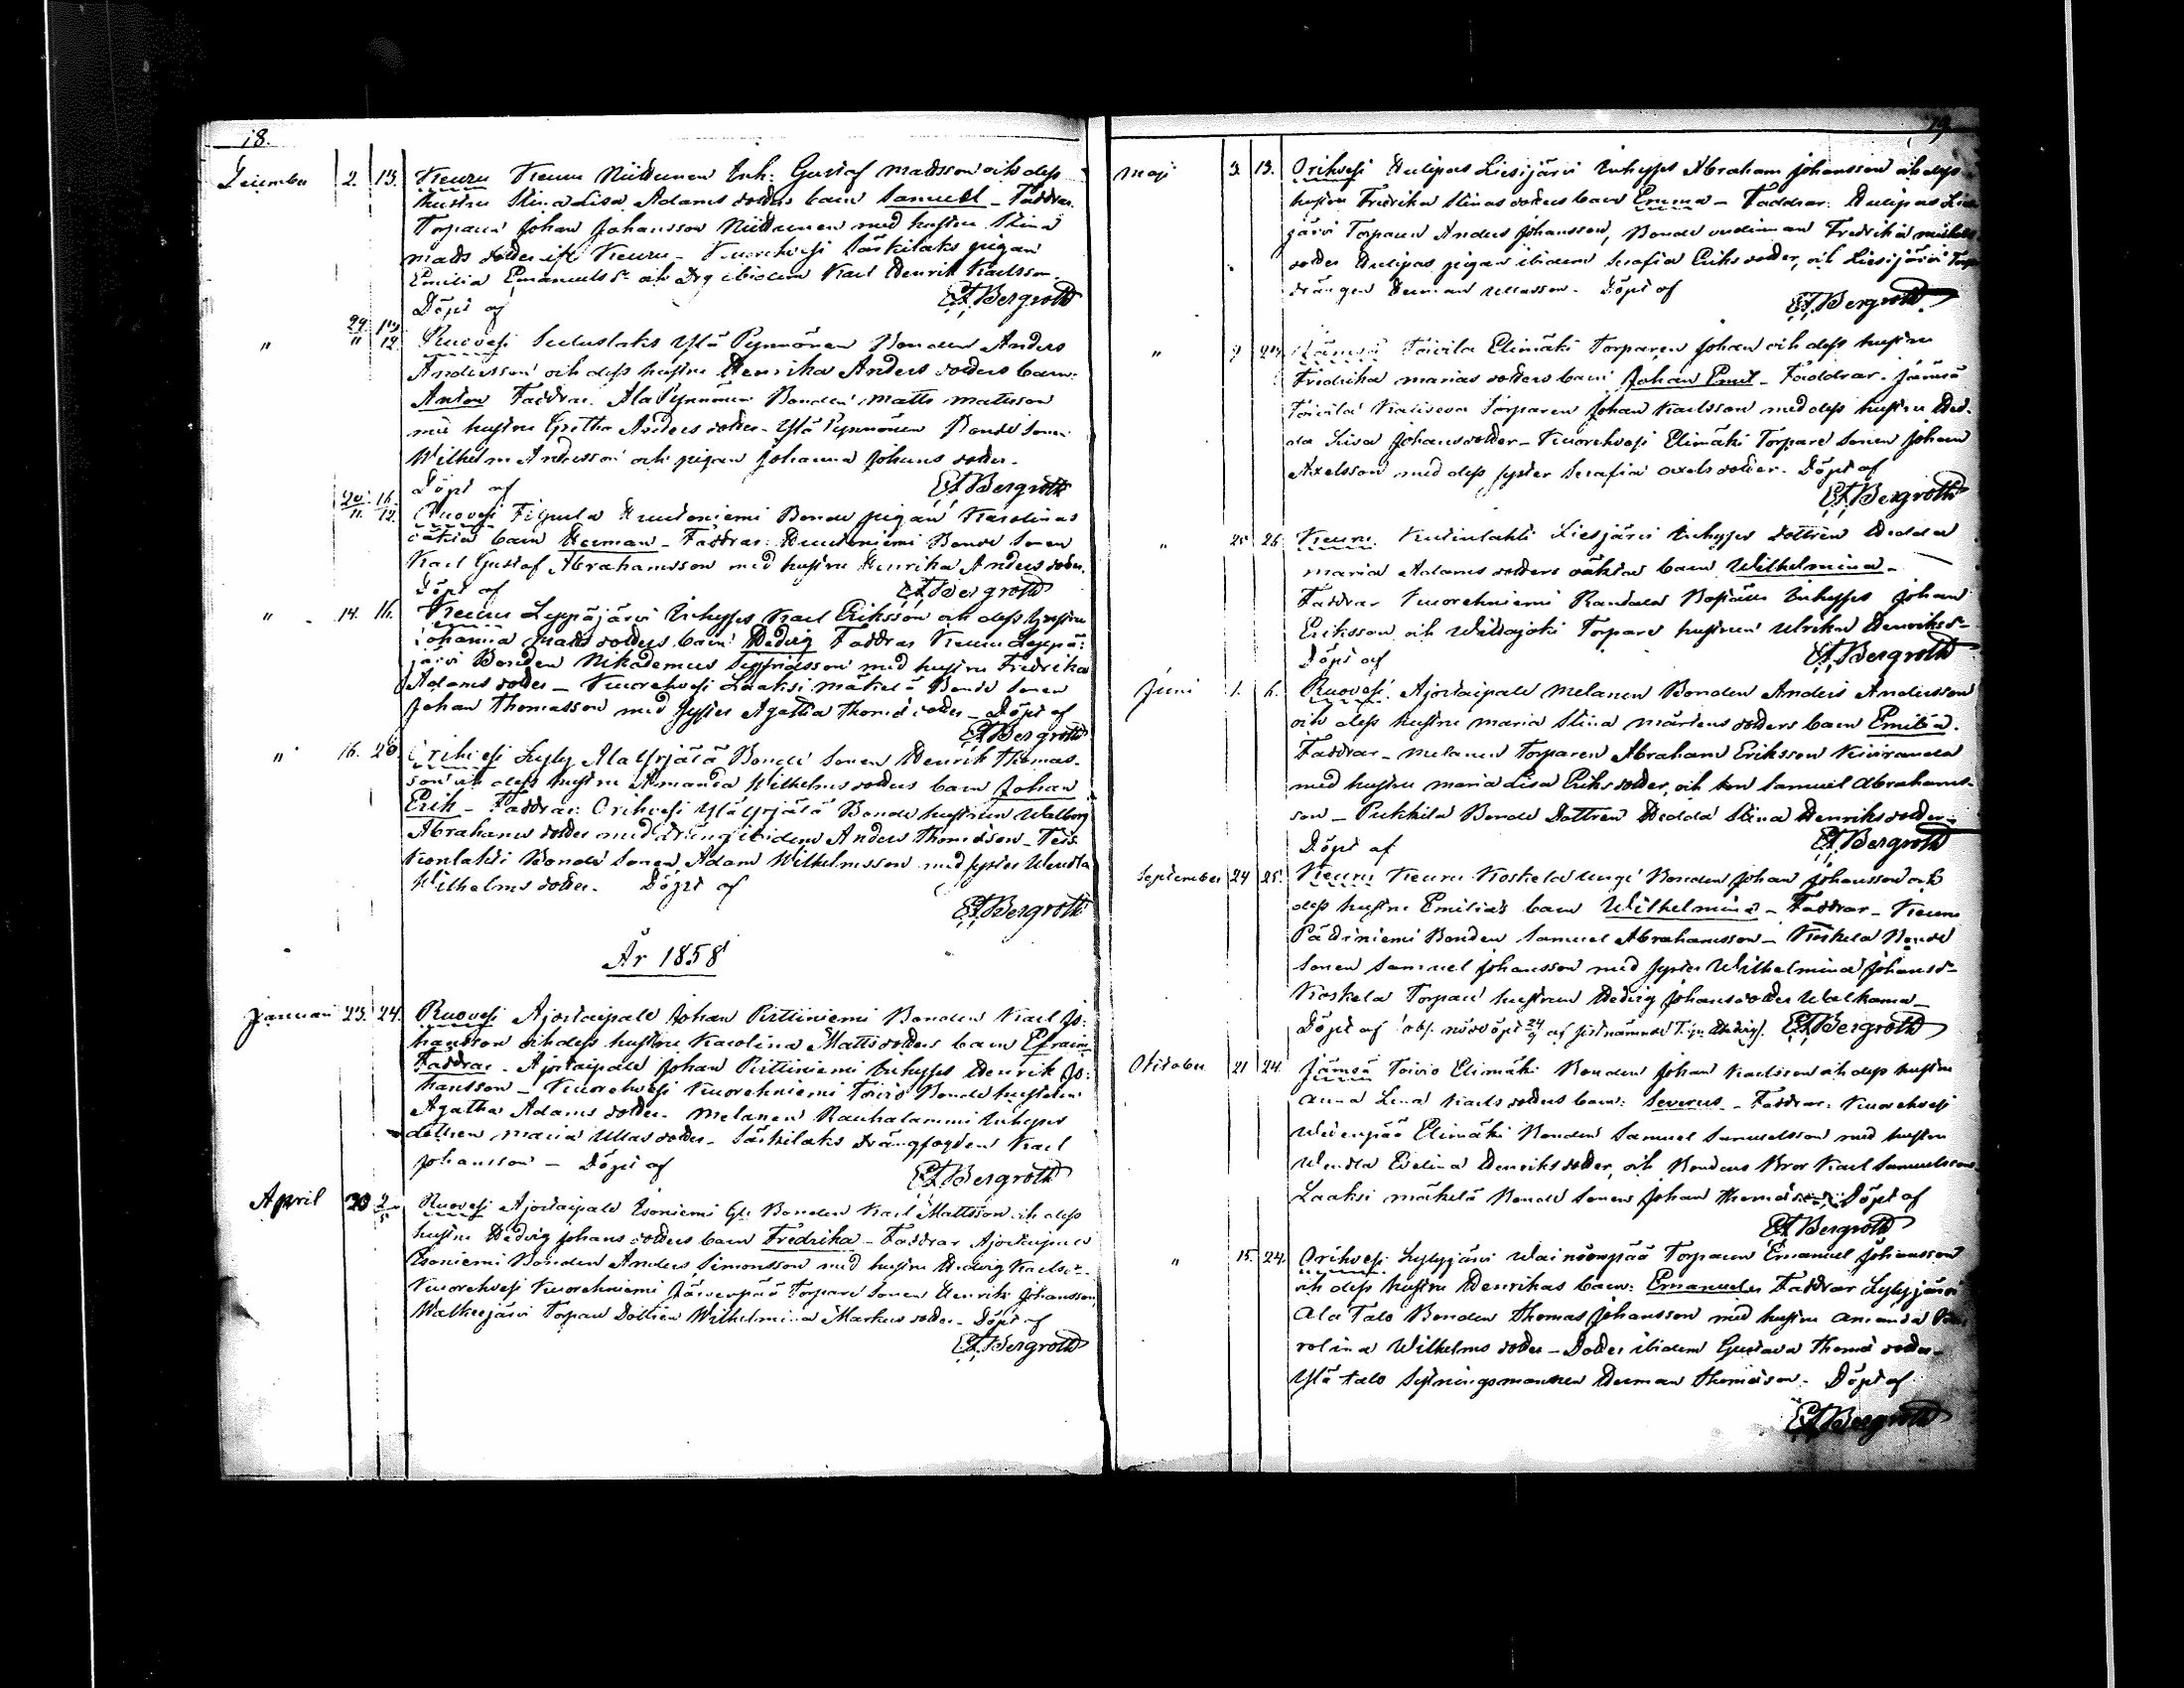 18.
December 2. 13. Keuru Keuru Niittunen Inh: Gustaf Madsson och dess
hustru Stina Lisa Adams dotters barn Samuel - Faddrar
Torparen Johan Johansson Niittunen med hustru Stina
Mads dotter ifr Keuru - Kuorehvesi Särkilaks pigan
Emilia Emanuels dr och Drg ibidem Karl Henrik Karlsson.
Döpt af EF Bergroth
" 29/11 19/12. Ruovesi Ylä Pynnönen Bonden Anders
Andersson och dess hustru Henrika Anders dotters barn:
Anton Faddrar. Ala Pynnönen Bonden Matts Matsson
med hustru Gretha Anders dotter - Ylä Pynnönen Bonde Sonen
Wilhelm Andersson och pigan Johanna Johans dotter.
Döpt af EF Bergroth
20/11. 16/12. Ruovesi Huutoniemi Bonde pigan Karolinas
oäkta barn Herman - Faddrar: Huutoniemi Bonde Sonen
Karl Gustaf Abrahamsson med hustru Henrika Anders dotter.
Döpt af EF Bergroth
" 14. 16. Keuru Leppäjärvi Inhyses Karl Eriksson och dess hustru
Johanna Matts dotters barn Hedvig Faddrar Keuru Leppä:
järvi Bonden Nikodemus Sigfridsson med hustru Fredrika
Adams dotter - Kuorehvesi Laaksi Mäkelä Bonde Sonen
Johan Thomasson med Syster Agatha Thomæ dotter - Döpt af
EF Bergroth
" 16. 20. Orihvesi Lyly Ala Yrjälä Bonde Sonen Henrik Thomas-
son och dess hustru Amanda Wilhelms dotters barn Johan
Erik - Faddrar: Orihvesi Ylä Yrjälä Bonde hustrun Walborg
Abrahams dotter med dräng ibidem Anders Thomasson - Teis
Bonde Sonen Adam Wilhelmsson med syster Wendla
Wilhelms dotter. Döpt af
EF Bergroth
År 1858
Januari 23. 24. Ruovesi Ajostaipale Johan Pirttiniemi Bonden Karl Jo:
hansson och dess hustru Karolina Matts dotters barn Efraim
Faddrar - Ajostaipale Johan Pirttiniemi Inhyses Henrik Jo:
hansson - Kuorehvesi Kuorehniemi Toivo Bonde hustrun
Agatha Adams dotter. Melanen Rauhalammi Inhyses
dottren Maria Ullas dotter - Särkilaks Drängfogden Karl
Johansson - Döpt af EF Bergroth
April 20 2/5 Ruovesi Ajostaipale Isoniemi Bonden Karl Mattsson och dess
hustru Hedvig Johans dotters barn Fredrika - Faddrar Ajostaipale
Isoniemi Bonden Anders Simonsson med hustru Hedvig Karlsdr.
Kuorehvesi Kuorehniemi Järvenpää Torpare Sonen Henrik Johansson,
Walkeejärvi Torpare Dottren Wilhelmina Markus dotter - Döpt af
EF Bergroth
19
Maj 3. 13. Orihvesi Hulipas Liesijärvi Inhyses Abraham Johansson och dess
hustru Fredrika Stinas dotters barn Emma - Faddrar: Hulipas Lies
järvi Torparen Anders Johansson, Bonde Fredrika Mickels
dotter Hulipas pigan ibidem Serafia Eriks dotter, och Liesijärvi Torp
drängen Herman Ullasson. Döpt af
EF Bergroth
" 7 24 Jämsä Toivila Elimäki Torparen Johan och dess hustru
Fredrika Marias dotters barn Johan Emil - Faddrar. Jämsä
Toivila Torparen Johan Karlsson med dess hustru Hed-
da Lisa Johans dotter - Kuorehvesi Elimäki Torpare Sonen Johan
Axelsson med dess syster Serafia Axels dotter. Döpt af
EF Bergroth
" 25 26 Keuru. Liesjärvi Inhyses Dottren Hedda
Maria Adams dotters oäkta barn Wilhelmina -
Faddrar Kuorehniemi Inhyses Johan
Eriksson och Willajoki Torpare hustrun Ulrika Henriksdr-
Döpt af EF Bergroth
Juni 1. 6. Ruovesi. Ajostaipale Melanen Bonden Anders Andersson
och dess hustru Maria Stina Mårtens dotters barn Emilia.
Faddrar - Melanen Torparen Abraham Eriksson Kiviranta
med hustru Maria Lisa Eriks dotter, och Son Samuel Abrahams-
son - Pukkila Bonde Dottren Hedda Stina Henriks dotter -
Döpt af EF Bergroth
September 24 25. Keuru Keuru Koskela Bonden Johan Johansson och
dess hustru Emilias barn Wilhelmina - Faddrar - Keuru
Pädiniemi Bonden Samuel Abrahamsson - Koskela Bonde
Sonen Samuel Johansson med syster Wilhelmina Johansdr-
Koskela Torpare hustrun Hedvig Johans dotter Walkama -
Döpt af (obs. nöddöpt 24/9 af sistnämnde Hedvig). EF Bergroth
October 21 24 Jämsä Toivio Elimäki Bonden Johan Karlsson och dess hustru
Anna Lena Karls dotters barn: Severus - Faddrar: Kuorehvesi
Wedenpää Elimäki Bonden Samuel Samuelsson med hustru
Wendla Evelina Henriks dotter, och Bondens Bror Karl Samuelsson.
Laaksi Mäkelä Bonde Sonen Johan Thomasson. Döpt af
EF Bergroth
" 15. 24. Orihvesi Lylyjärvi Wainöenpää Torparen Emanuel Johansson
och dess hustru Henrikas barn: Emanuel. Faddrar Lylyjärvi
Ala Talo Bonden Thomas Johansson med hustru Amanda Ka
rolina Wilhelms dotter - Dotter ibidem Gustava Thomæ dotter -
Ylä talo Sytningsmannen Herman Thomasson. Döpt af
EF Bergroth